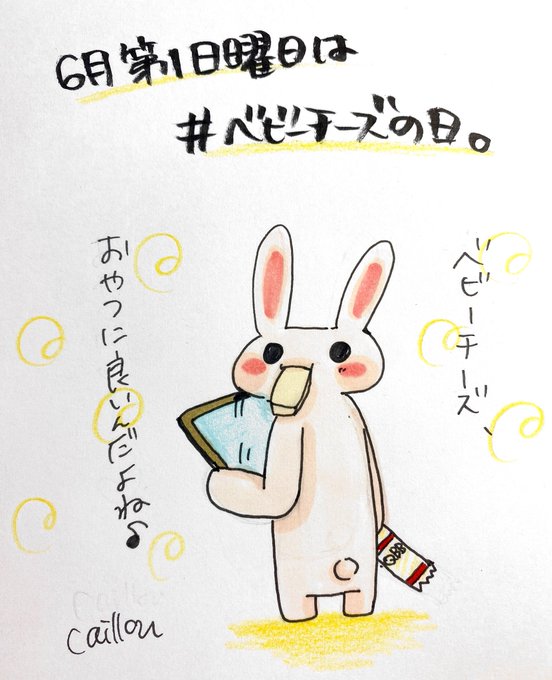 6月第1日曜日は
#ベビーチーズの日。
ベビーチーズ、
おやつに良いんだよね♪
QBB
caillou